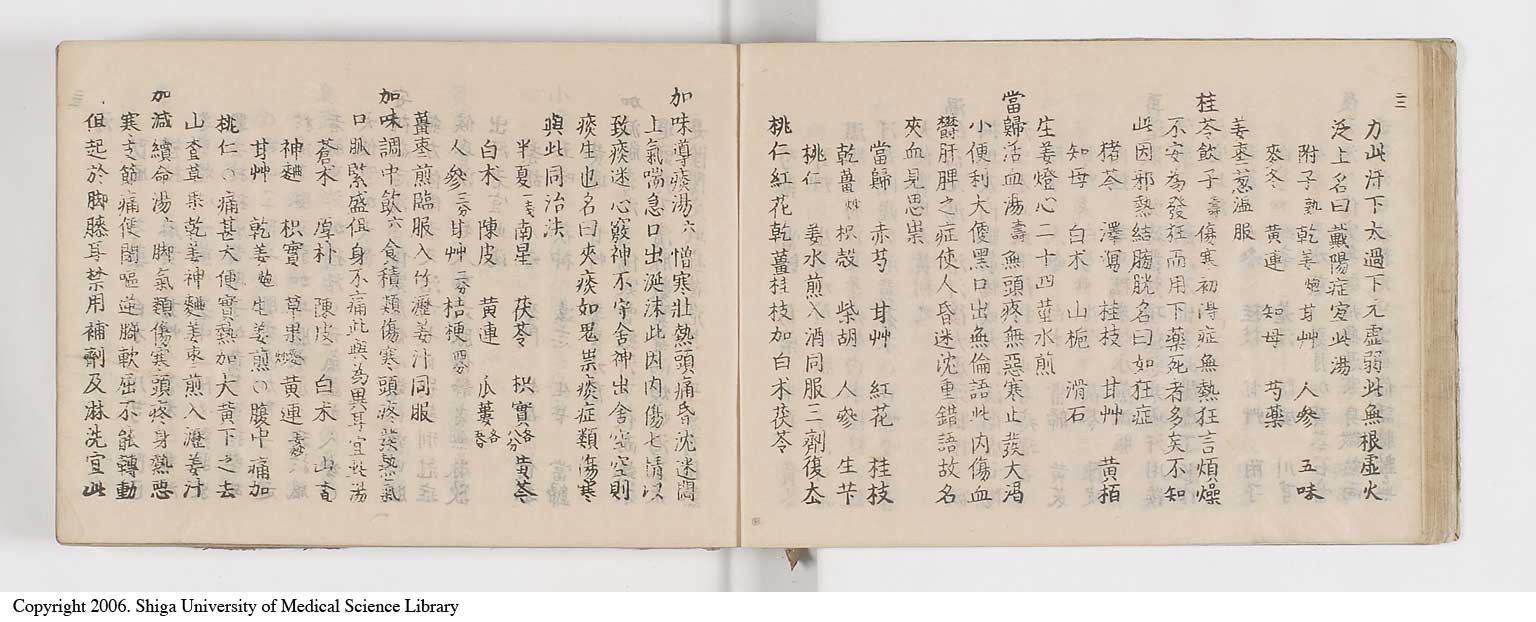 三
力此汗下太過下元虛弱此無根虛火
泛上名曰戴陽症宜此湯
附子熟 乾姜炮 甘艸 人參 五味
麥冬 黄連 知母 芍藥
姜棗葱溫服
桂苓飲子 壽 傷寒初得症無熱狂言煩燥
不安為發狂而用下藥死者多矣不知
此因邪熱結膀胱名曰如狂症
猪苓 澤瀉 桂枝 甘艸 黄栢
知母 白朮 山梔 滑石
生姜燈心二十四莖水煎
當歸活血湯 壽 無頭疼無惡寒止發大渴
小便利大便黑口出無倫語此内傷血
欝肝脾之症使人昏迷沈重錯語故名
夾血見思祟
當歸 赤芍 甘艸 紅花 桂枝
乾薑炒 枳殻 柴胡 人參 生芐
桃仁 姜水煎入酒同服二三劑復去
桃仁紅花乾薑桂枝加白朮茯苓
加味導痰湯 六 憎寒壯熱頭痛昏沈迷悶
上氣喘急口出涎沫此因内傷七情以
致痰迷心竅神不守舍神出舍空空則
痰生也名曰夾痰如鬼祟痰症類傷寒
與此同治法
半夏 南星 茯苓 枳實各八分 黄芩
白朮 陳皮 黄連 瓜蔞各
人參二分 甘艸二分 桔梗四分
薑棗煎臨服入竹瀝姜汁同服
加味調中飲 六 食積類傷寒頭疼發熱氣
口脈緊盛但身不痛此與為異耳宜此湯
蒼朮 厚朴 陳皮 白朮 山查
神麯 枳實 草果 黄連
甘艸 乾姜炮 生姜煎〇腹中痛加
桃仁〇痛甚大便實熱加大黄下之去
山查草果乾姜神麯姜棗煎入瀝姜汁
加減續命湯 脚氣類傷寒頭疼身熱惡
寒支節痛便閉嘔逆脚軟屈不能轉動
但起於脚膝耳禁用補劑及淋洗宜此
Copyright 2006. Shiga University of Medical Science Library